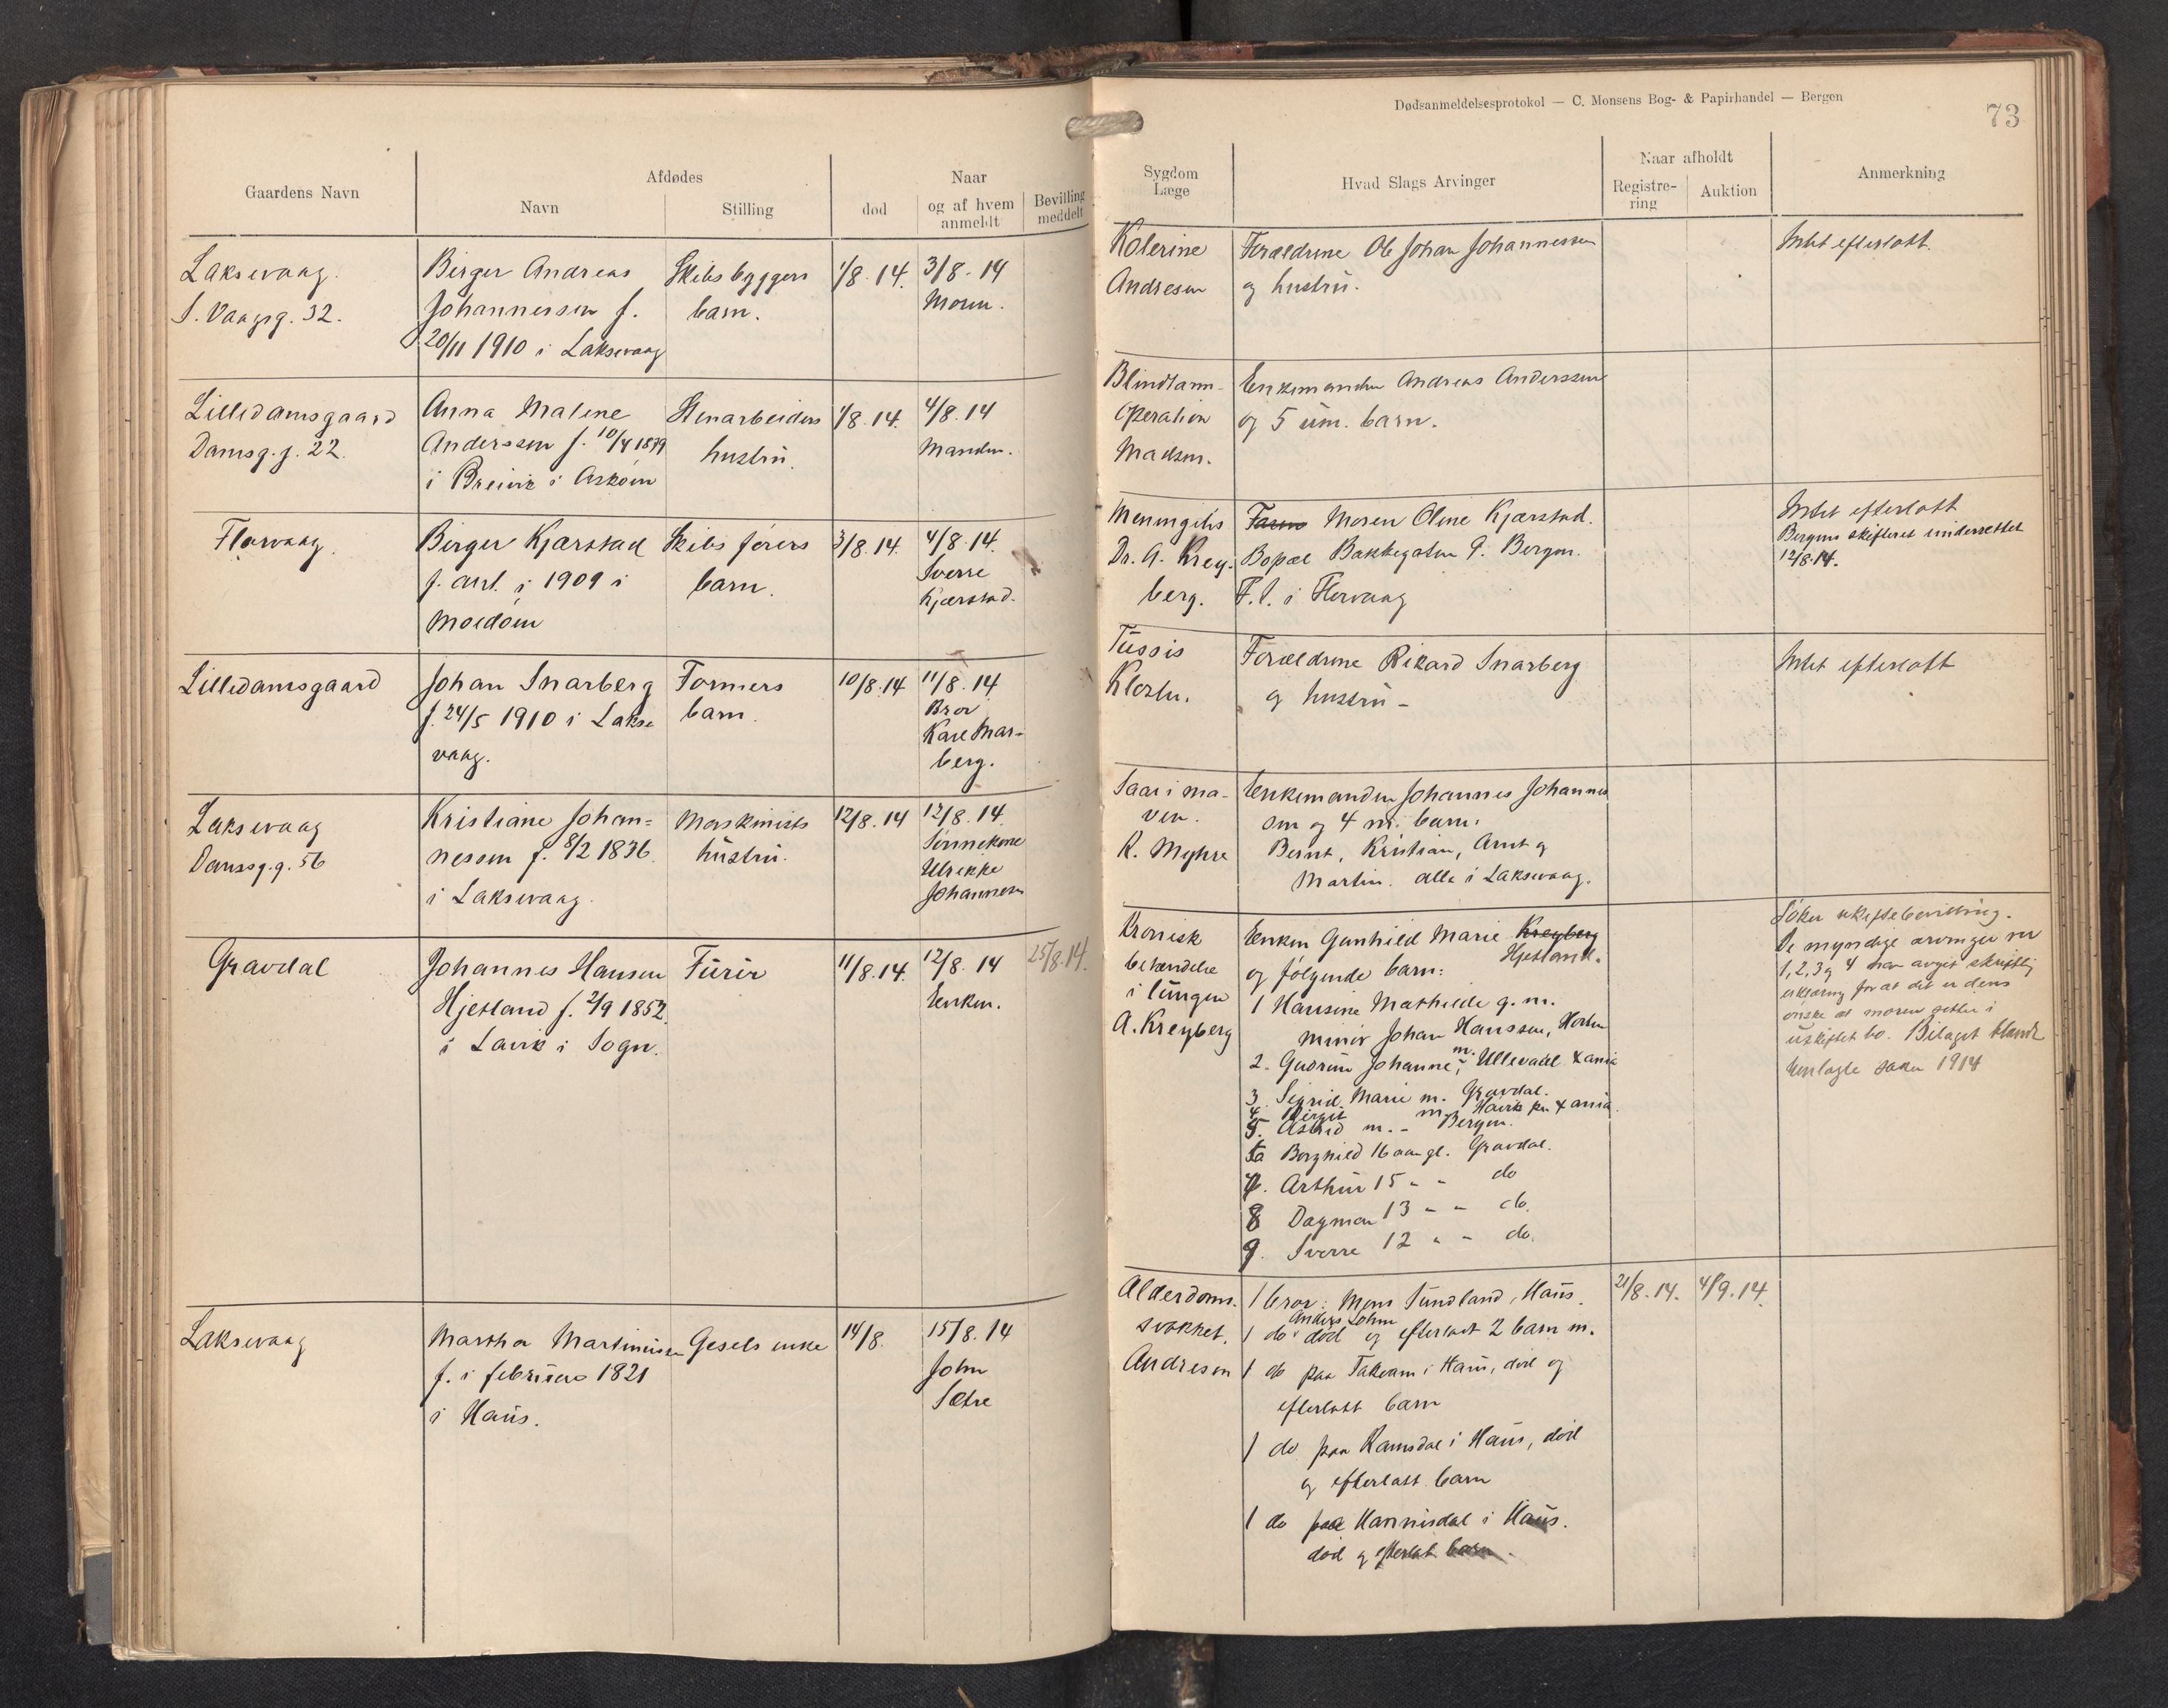 Dødsanmeldelsesprotokol — C. Monsens Bog- & Papirhandel — Bergen
73
Gaardens Navn
Afdødes
Navn
Stilling
død
Naar
og af hvem
anmeldt
Bevilling
meddelt
Sygdom
Læge
Hvad Slags Arvinger
Naar afholdt
Registre-
ring
Auktion
Anmerkning
Laksevaag.
S. Vaagsg. 32.
Birger Andreas
Johannessen f.
20/11 1910 i Laksevaag
Skibsbyggers
barn.
1/8.14.
3/8.14
Moren.
Kolerine
Andresen
Forældrene Ole Johan Johannessen
og hustru.
Intet efterlatt.
Lilledamsgaard
Damsg.g. 22.
Anna Malene
Anderssen f. 10/4 1879
i Breivik i Askøen
Stenarbeiders
hustru.
1/8.14.
4/8.14
Manden.
Blindtarm-
operation
Madsen.
Enkemanden Andreas Anderssen
og 5 um. barn.
Florvaag.
Birger Kjærstad
f. ant. i 1909 i
Moldøen
Skibsførers
barn.
3/8.14.
4/8.14.
Sverre
Kjærstad.
Meningitis
Dr. A. Krey-
berg.
Moren Oline Kjærstad.
Bopæl Bakkegaten 9. Bergen.
F.t. i Florvaag
Intet efterlatt
Bergens skifteret underrettet
12/8.14.
Lilledamsgaard
Johan Snarberg
f. 24/5 1910 i Lakse
vaag.
Formers
barn.
10/8.14
11/8.14
Bror
Karl Snar-
berg.
Tussis
Forældrene Rikard Snarberg
og hustru -
Intet efterlatt
Laksevaag
Damsg.g. 56
Kristiane Johan=
nessen f. 8/2 1836
i Laksevaag.
Maskinists
hustru.
12/8.14
12/8.14.
Sønnekone
Ulrikke
Johannesen
Saar i ma-
ven.
K. Myhre
Enkemanden Johannes Johannes
sen og 4 m. barn:
Bernt, Kristian, Arnt og
Martin. alle i Laksevaag.
Gravdal
Johannes Hansen
Hjetland f. 2/9 1852.
i Lavik i Sogn.
Furer
11/8.14.
12/8.14
Enken.
25/8.14.
Kronisk
betændelse
i lungen
A. Kreyberg
Enken Gunhild Marie Kreyberg
Hjetland.
og følgende barn:
1 Hansine Mathilde g. m.
minør Johan Hanssen, Horten
2. Gudrun Johanne, m. Ullevaal Xania
3. Sigrid Marie m. Gravdal.
4. Birgit m.
5. Astrid m. - Bergen.
6 Borghild 16 aar gl. Gravdal.
7. Arthur 15 - - do
8 Dagmar 13 - - do.
9. Sverre 12 - - do.
Søker skiftebevilling.
De myndige arvinger nr
1, 2, 3 og 4 har avgit skriftlig
erklæring for at det er deres
ønske at moren sitter i
uskiftet bo. Bilaget blandt
henlagte saker 1914
Laksevaag
Martha Martinusen
f. i februar 1821
i Haus.
Gesels enke
14/8.
15/8.14
John
Sætre
Alderdoms-
svakhet.
Andresen
1 bror: Mons Sundland, Haus.
1 do død og efterlatt 2 barn m.
1 do paa Takvam i Haus, død og
efterlatt barn
1 do paa Ramsdal i Haus, død
og efterlatt barn
1 do paa Hannisdal i Haus.
død og efterlat barn.
21/8.14.
4/9.14.